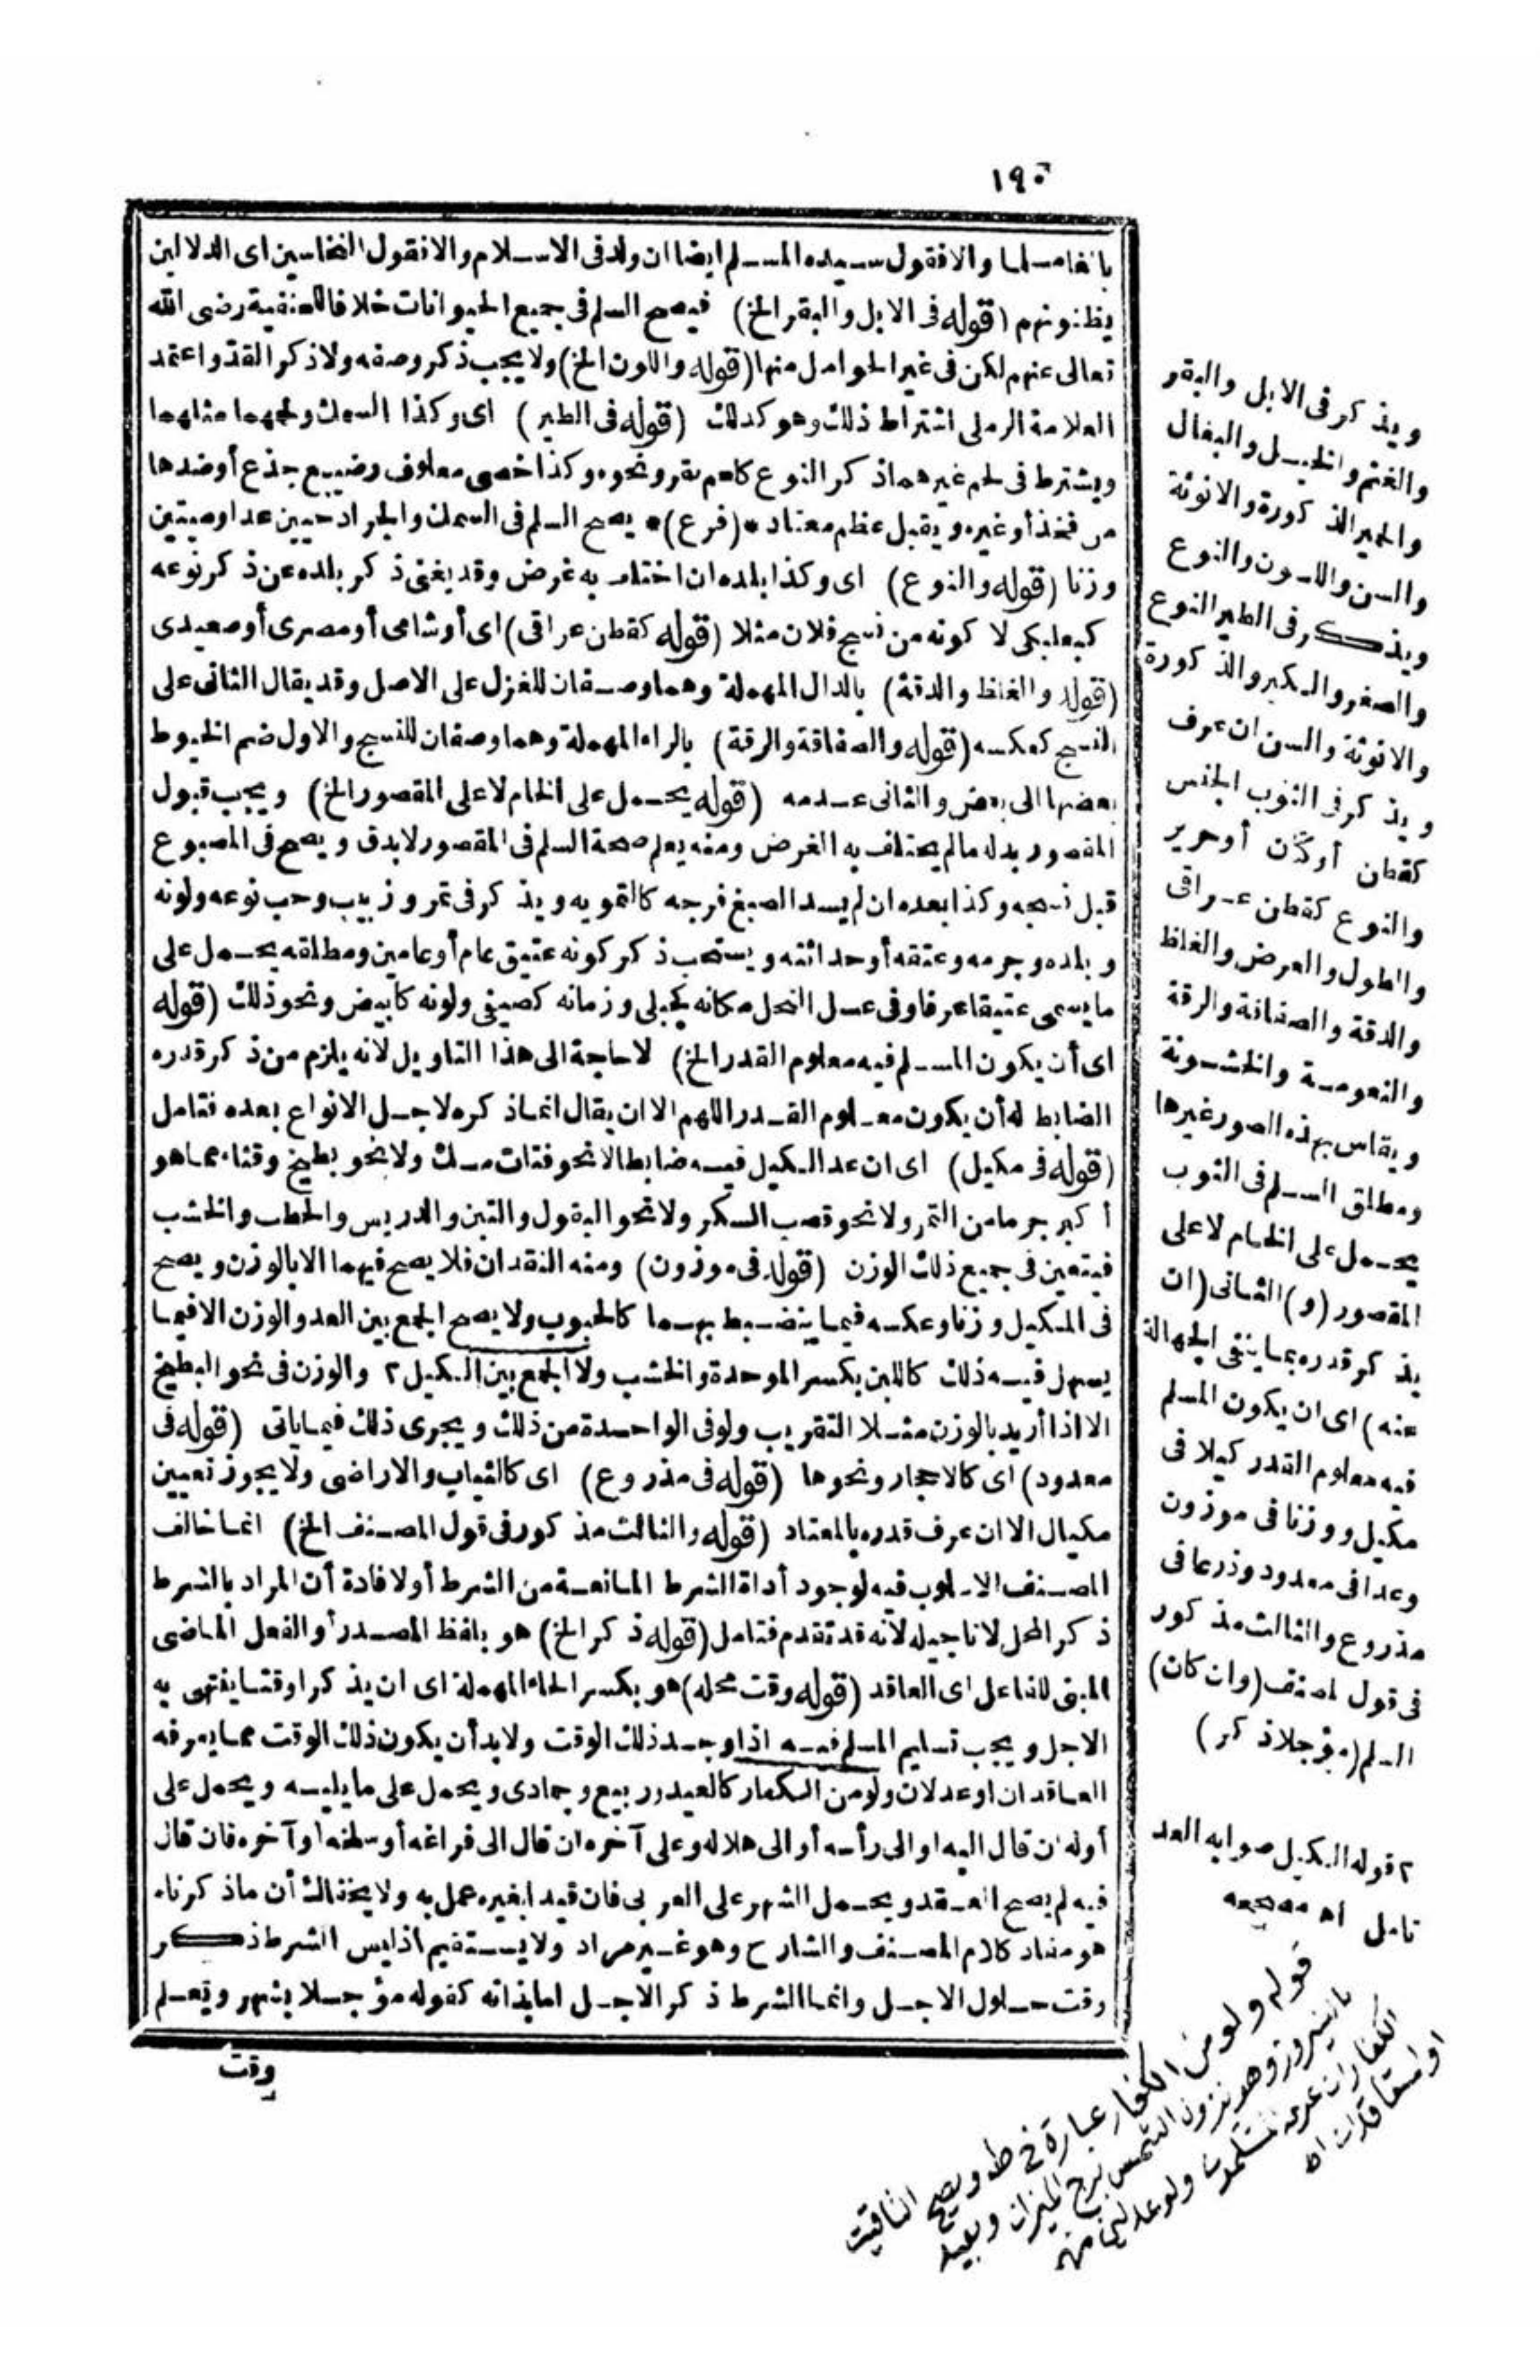 ١٩٥
بالغا مسلما والا فقول سيده المسلم ايضا ان ولد فى الاسلام والا فقول النخاسين اى الدلالين
بظنونهم (قوله فى الابل والبقر الخ) فيصح السلم فى جميع الحيوانات خلافا للحنفية رضى الله
تعالى عنهم لكن فى غير الحوامل منها (قوله واللون الخ) ولا يجب ذكر وصفه ولا ذكر القد واعتمد
العلامة الرملى اشتراط ذلك وهو كذلك (قوله فى الطير) اى وكذا السمك ولحمهما مثلهما
ويشترط فى لحم غيرهما ذكر النوع كلحم بقر ونحوه وكذا خصى معلوف رضيع جذع أو ضدها
من فخذ أو غيره ويقبل عظم معتاد *(فرع)* يصح السلم فى السمك والجراد حيين عدا وميتين
وزنا (قوله والنوع) اى وكذا بلده ان اختلف به غرض وقد يغنى ذكر بلده عن ذكر نوعه
كبعلبكى لا كونه من نسج فلان مثلا (قوله كقطن عراقى) اى أو شامى أو مصرى أو صعيدى
(قوله والغلظ والدقة) بالدال المهملة وهما وصفان للغزل على الاصل وقد يقال الثانى على
النسج كعكسه (قوله والصفاقة والرقة) بالراء المهملة وهما وصفان للنسج والاول ضم الخيوط
بعضها الى بعض والثانى عدمه (قوله يحمل على الخام لا على المقصور الخ) ويجب قبول
المقصور بدله ما لم يختلف به الغرض ومنه يعلم صحة السلم فى المقصور لا بدق ويصح فى المصبوغ
قبل نسجه وكذا بعده ان لم يسد الصبغ فرجه كالتمويه ويذكر فى تمر وزبيب وحب نوعه ولونه
وبلده وجرمه وعتقه أو حداثته ويستحب ذكر كونه عتيق عام أو عامين ومطلقه يحمل على
ما يسمى عتيقا عرفا وفى عسل النحل مكانه كجبلى وزمانه كصيفى ولونه كأبيض ونحو ذلك (قوله
اى أن يكون المسلم فيه معلوم القدر الخ) لا حاجة الى هذا التاويل لانه يلزم من ذكر قدره
الضابط له أن يكون معلوم القدر اللهم الا ان يقال انما ذكره لاجل الانواع بعده فتامل
(قوله فى مكيل) اى ان عد الكيل فيه ضابطا لا نحو فتات مسك ولا نحو بطيخ وقثاء مما هو
أكبر جرما من التمر ولا نحو قصب السكر ولا نحو البقول والتبن والدريس والحطب والخشب
فيتعين فى جميع ذلك الوزن (قوله فى موزون) ومنه النقدان فلا يصح فيهما الا بالوزن ويصح
فى المكيل وزنا وعكسه فيما ينضبط بهما كالحبوب ولا يصح الجمع بين العد والوزن الا فيما
يسهل فيه ذلك كاللبن بكسر الموحدة والخشب ولا الجمع بين الكيل ٢ والوزن فى نحو البطيخ
الا اذا أريد بالوزن مثلا التقريب ولو فى الواحدة من ذلك ويجرى ذلك فيما ياتى (قوله فى
معدود) اى كالاحجار ونحوها (قوله فى مذروع) اى كالثياب والاراضى ولا يجوز تعيين
مكيال الا ان عرف قدره بالمعتاد (قوله والثالث مذكور فى قول المصنف الخ) انما خالف
المصنف الاسلوب فيه لوجود أداة الشرط المانعة من الشرط أو لافادة أن المراد بالشرط
ذكر المحل لا تاجيله لأنه قد تقدم فتامل (قوله ذكر الخ) هو بلفظ المصدر أو الفعل الماضى
المبنى للفاعل اى العاقد (قوله وقت محله) هو بكسر الحاء المهملة اى ان يذكرا وقتا ينتهى به
الاجل ويجب تسليم المسلم فيه اذا وجد ذلك الوقت ولا بد أن يكون ذلك الوقت مما يعرفه
العاقدان او عدلان ولو من الكفار كالعيد وربيع وجمادى ويحمل على ما يليه ويحمل على
أوله ان قال اليه او الى رأسه أو الى هلاله وعلى آخره ان قال الى فراغه أو سلخه او آخره فان قال
فيه لم يصح العقد ويحمل الشهر على العربى فان قيدا بغيره عمل به ولا يخفاك أن ما ذكرناه
هو مفاد كلام المصنف والشارح وهو غير مراد ولا يستقيم اذ ليس الشرط ذكر
وقت حلول الاجل وانما الشرط ذكر الاجل اما بذاته كقوله مؤجلا بشهر وتعلم
وقت
ويذكر فى الابل والبقر
والغنم والخيل والبغال
والحمير الذكورة والانوثة
والسن واللون والنوع
ويذكر فى الطير النوع
والصغر والكبر والذكورة
والانوثة والسن ان عرف
ويذكر فى الثوب الجنس
كقطن أو كتان أو حرير
والنوع كقطن عراقى
والطول والعرض والغلظ
والدقة والصفاقة والرقة
والنعومة والخشونة
ويقاس بهذه الصور غيرها
ومطلق السلم فى الثوب
يحمل على الخام لا على
المقصور (و) الثانى (ان
يذكر قدره بما ينفى الجهالة
عنه) اى ان يكون المسلم
فيه معلوم القدر كيلا فى
مكيل ووزنا فى موزون
وعدا فى معدود وذرعا فى
مذروع والثالث مذكور
فى قول المصنف (وان كان)
السلم (مؤجلا ذكر)
٢ قوله الكيل صوابه العد
تامل اه مصححه
قوله ولو من الكفار عبارة خ ط ويصح التاقيت
بالنيروز وهو نزول الشمس برج الميزان وبعيد
الكفار ان عرفه المسلمون ولو عدلين منهم
او المتعاقدان اه